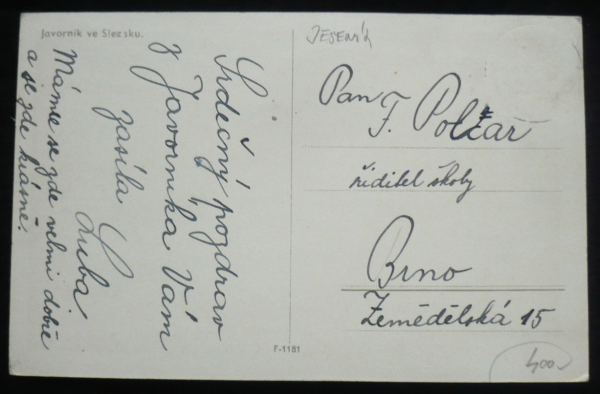 Javorník ve Slezsku.
Srdečný pozdrav
z Javorníka Vám
zasílá
Luba
Máme se zde velmi dobře
a je zde krásně.
F-1181
JESENÍK
Pan
F. Polčař
řiditel školy
Brno
Zemědělská 15
400.-